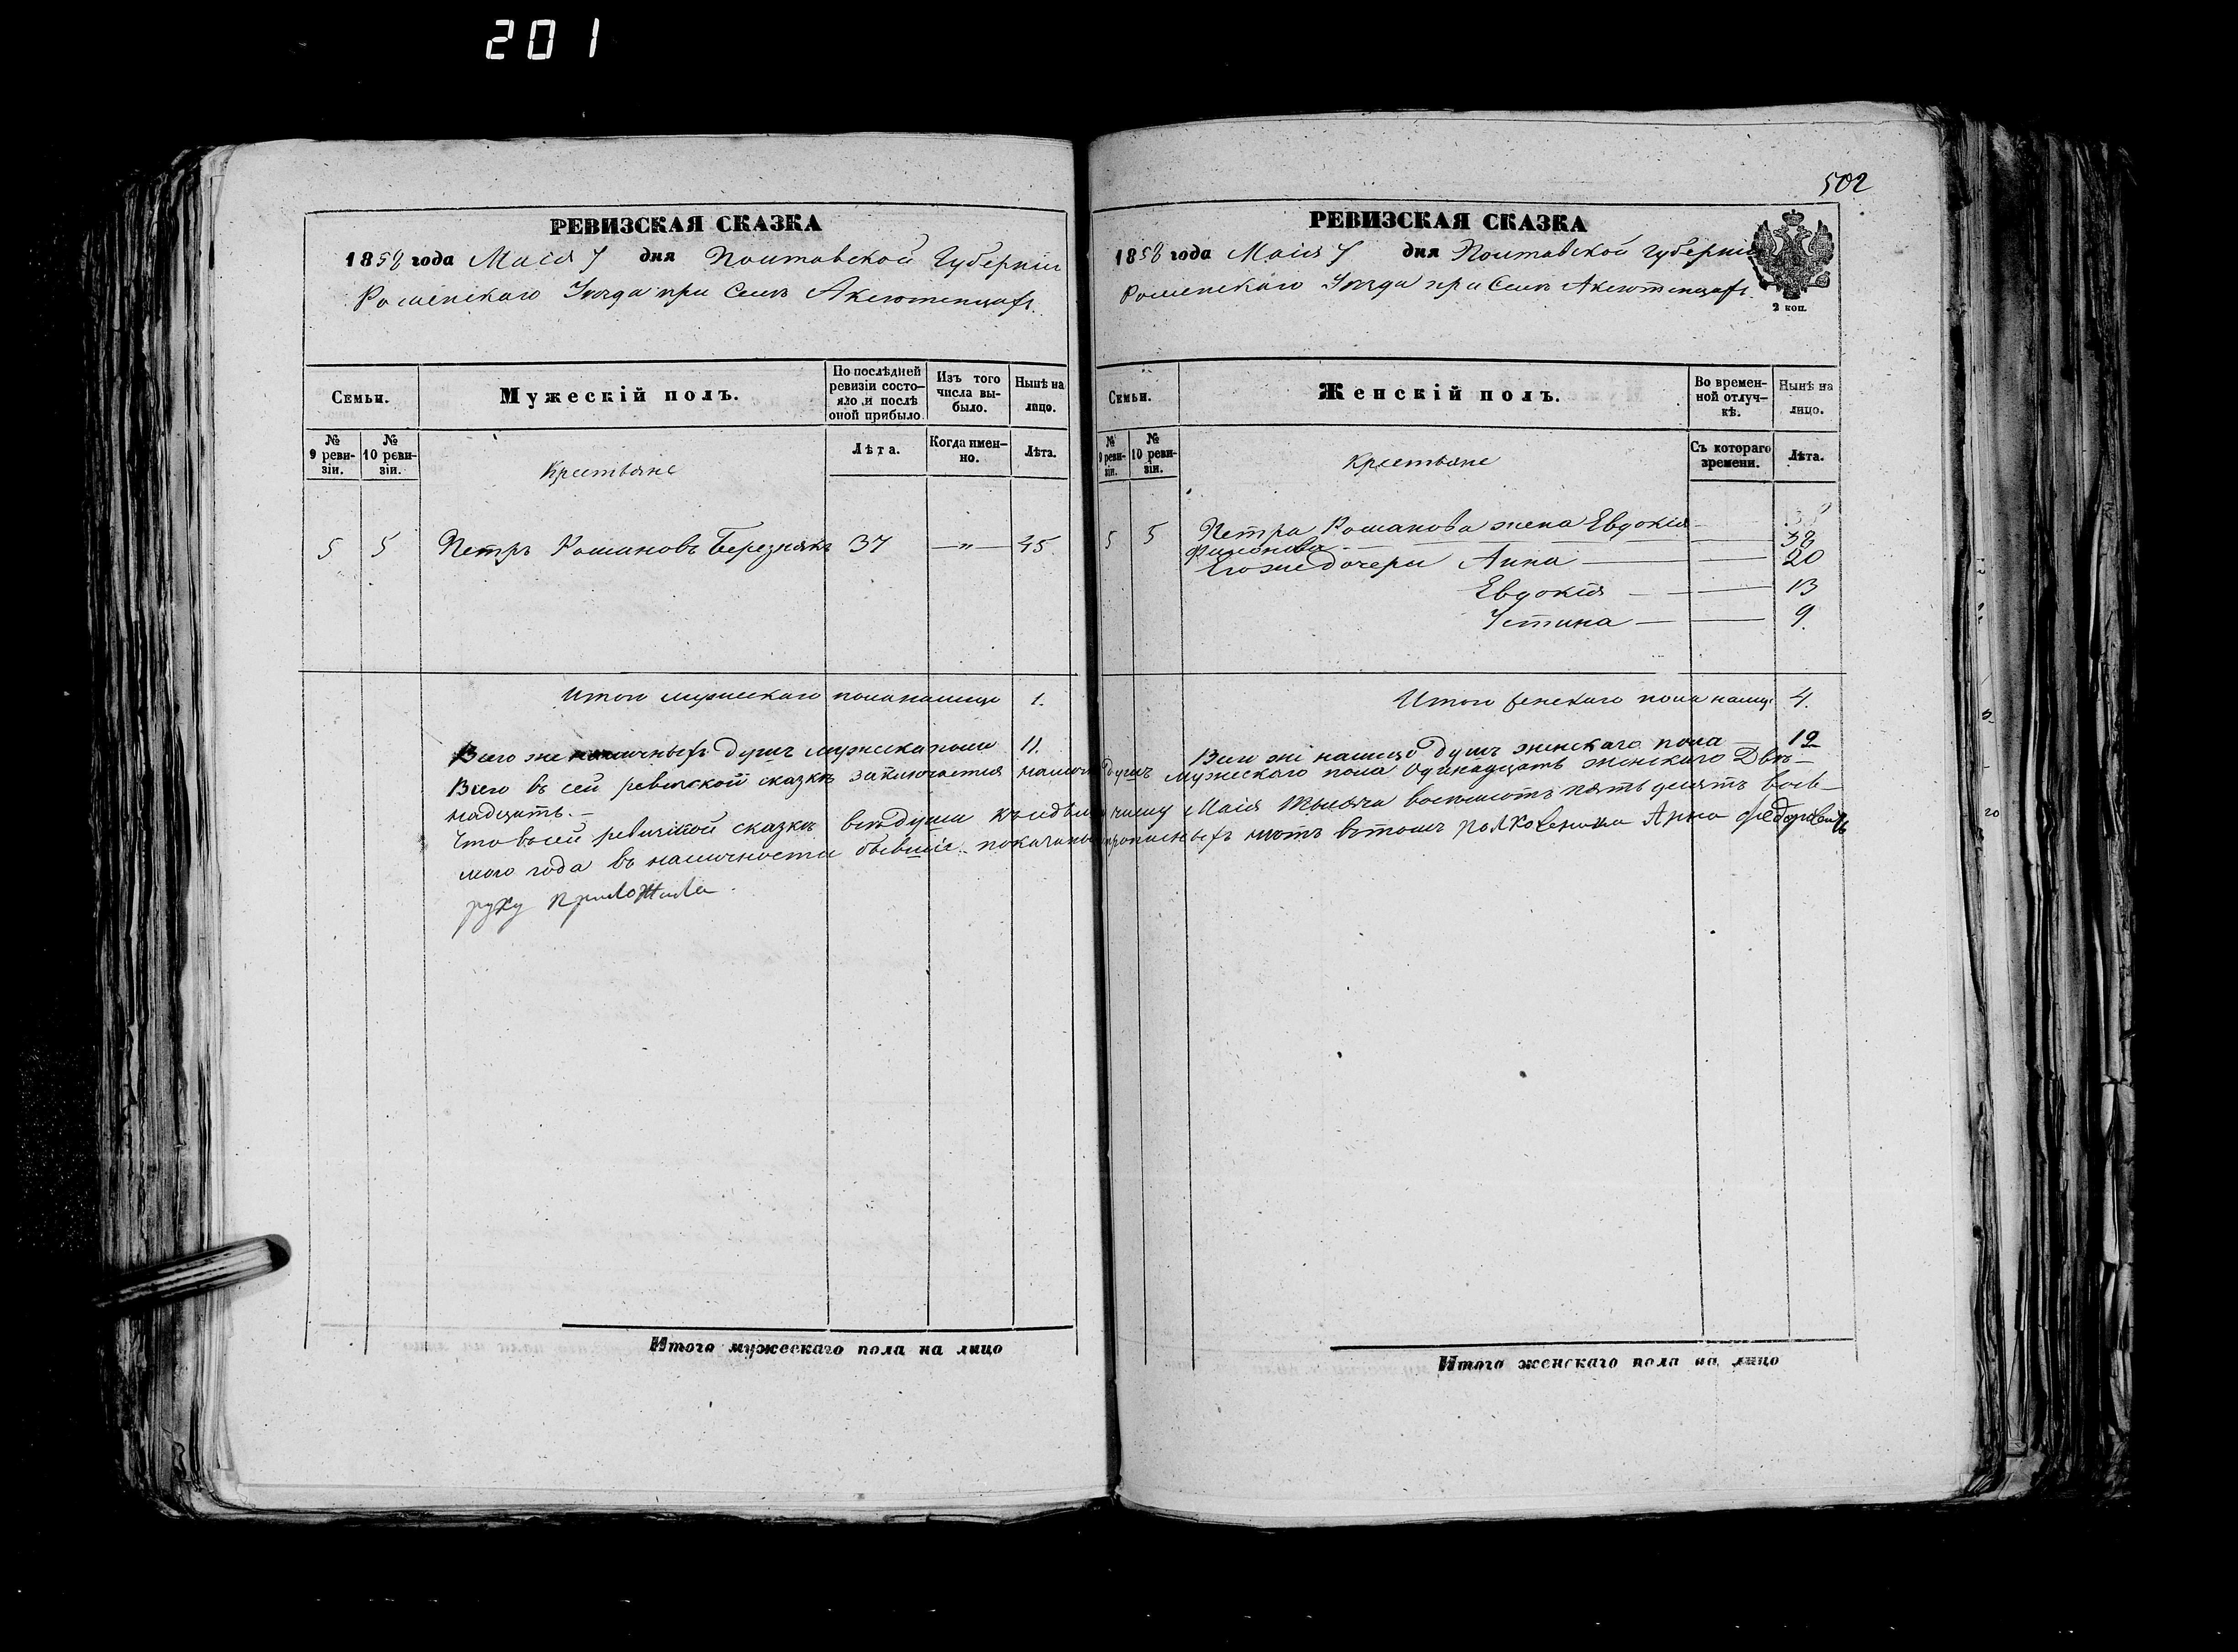 201
РЕВИЗСКАЯ СКАЗКА
1858 года Маія 7 дня Полтавской Губерніи
Роменскаго Уѣзда при Селѣ Аксютенцахъ.
Семьи.
Мужескій полъ.
По послѣдней ревизіи состояло и послѣ оной прибыло
Изъ того числа выбыло.
Нынѣ на лицо.
№ 9 ревизіи.
№ 10 ревизіи.
Крестьяне
Лѣта.
Когда именно.
Лѣта.
5 5 Петръ Романовъ Березнякъ 37 — " — 45
Итого мужескаго пола налицо 1.
Всего же наличныхъ душъ мужеска пола 11.
502
РЕВИЗСКАЯ СКАЗКА
1858 года Маія 7 дня Полтавской Губерніи
Роменскаго Уѣзда при Селѣ Аксютенцахъ.
2 коп.
Семьи.
Женскій полъ.
Во временной отлучкѣ.
Нынѣ на лицо.
№ 9 ревизіи.
№ 10 ревизіи.
Крестьяне
Съ котораго времени.
Лѣта.
5 5 Петра Романова жена Евдокія
38
Его же дочери Анна — — 20
Евдокія — — 13
Устина — — 9.
Итого женскаго пола налицо 4.
Всего же налицо душъ женскаго пола — 12
Всего въ сей ревизской сказкѣ заключается налично душъ мужескаго пола Одинадцать женскаго Двѣ-
надцать. —
Что въ сей ревизской сказкѣ всѣ души къ седьмому числу Маія тысяча восемьсотъ пятьдесятъ вось-
мого года въ наличности бывшіе показаны и прописныхъ нѣтъ въ томъ Полковница Анна
руку приложила.
Итого мужескаго пола на лицо
Итого женскаго пола на лицо